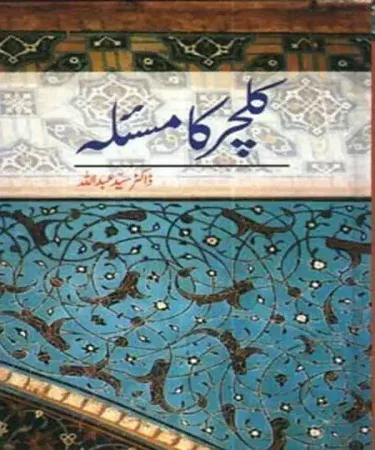 کلچر کا مسئلہ
ڈاکٹر سیّد عبداللہ